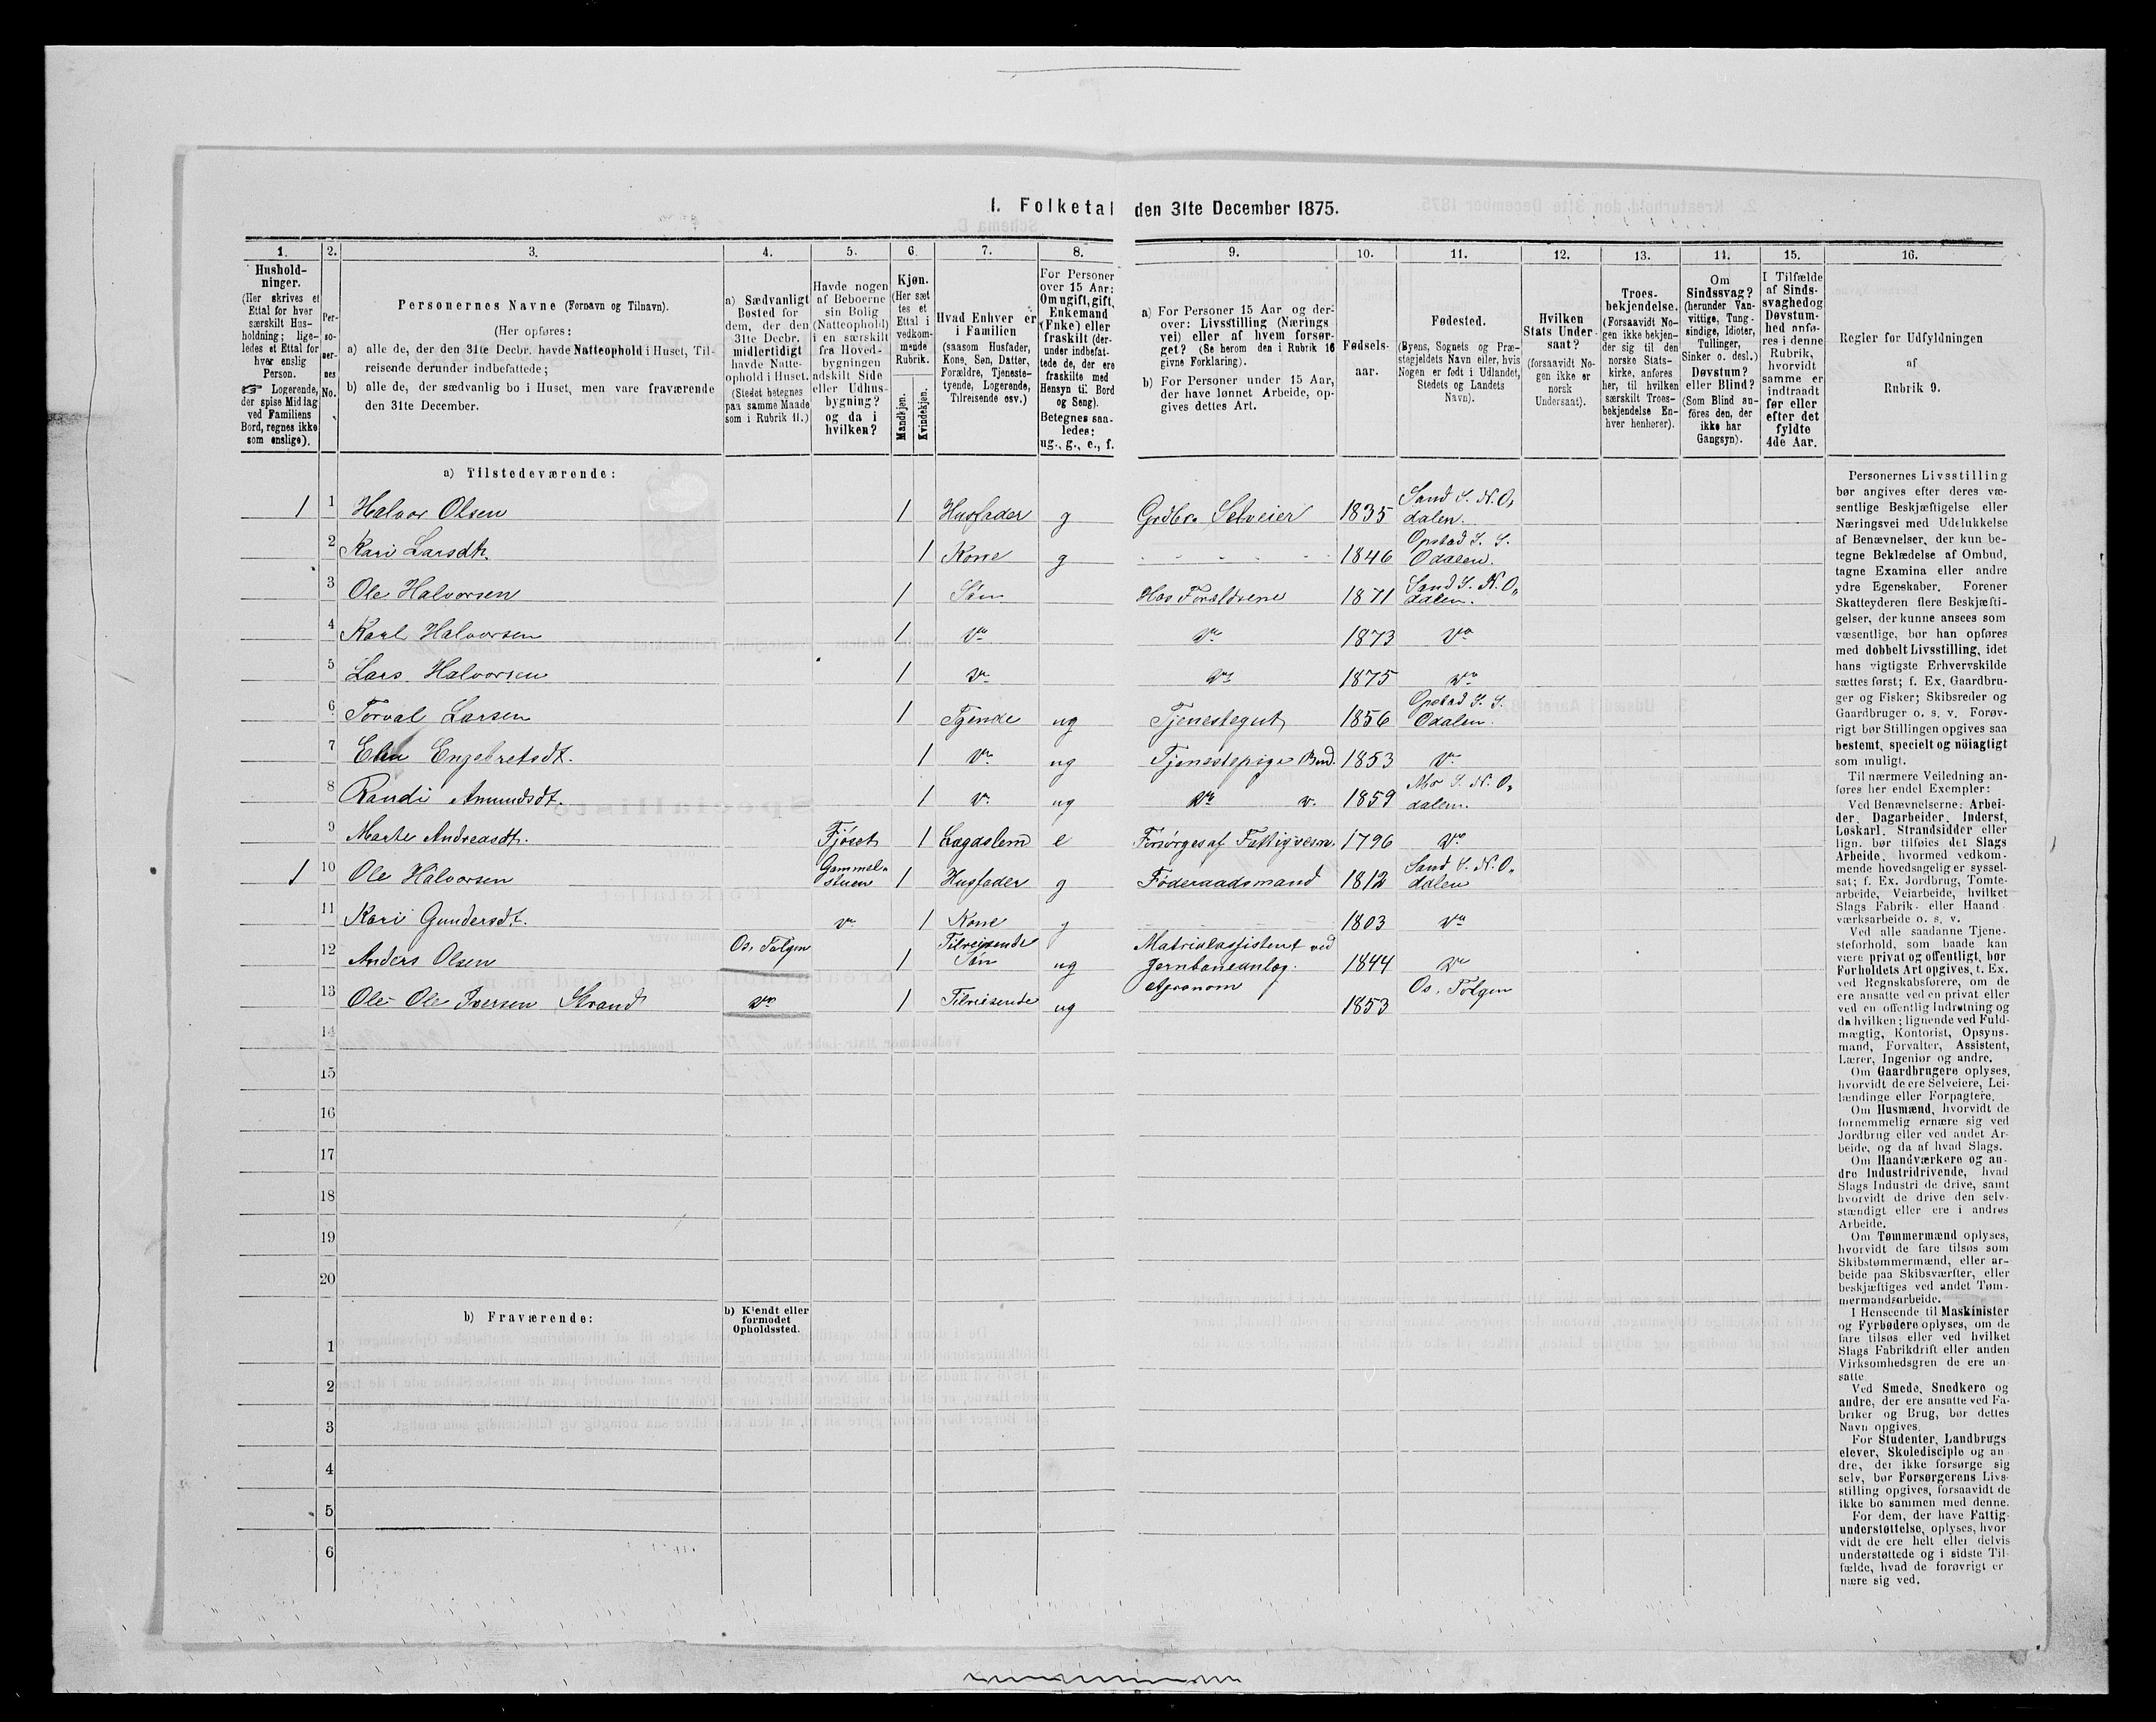 1. Folketal den 31te December 1875.
1. 2. 3. 4. 5. 6. 7. 8. 9. 10. 11. 12. 13. 14. 15. 16.
Hushold-
ninger.
(Her skrives et
Ettal for hver
særskilt Hus-
holdning; lige-
ledes et Ettal for
hver enslig
Person.
☞ Logerende,
der spise Middag
ved Familiens
Bord, regnes ikke
som enslige).
Per-
so-
ner-
nes
No.
Personernes Navne (Fornavn og Tilnavn).
(Her opføres:
a) alle de, der den 31te Decbr. havde Natteophold i Huset, Til-
reisende derunder indbefattede;
b) alle de, der sædvanlig bo i Huset, men vare fraværende
den 31te December.
a) Sædvanligt
Bosted for
dem, der den
31te Decbr.
midlertidigt
havde Natte-
ophold i Huset.
(Stedet betegnes
paa samme Maade
som i Rubrik 11.)
Havde nogen
af Beboerne
sin Bolig
(Natteophold)
i en særskilt
fra Hoved-
bygningen
adskilt Side
eller Udhus-
bygning?
og da i
hvilken?
Kjøn.
(Her sæt
tes et
Ettal i
vedkom-
mende
Rubrik.
Mandkjøn.
Kvindekjøn.
Hvad Enhver er
i Familien
(saasom Husfader,
Kone, Søn, Datter,
Forældre, Tjeneste-
tyende, Logerende,
Tilreisende osv.)
For Personer
over 15 Aar:
Om ugift, gift,
Enkemand
(Enke) eller
fraskilt (der-
under indbefat-
tede de, der ere
fraskilte med
Hensyn til Bord
og Seng).
Betegnes saa-
ledes:
ug., g., e., f.
a) For Personer 15 Aar og der-
over: Livsstilling (Nærings
vei) eller af hvem forsør-
get? (Se herom den i Rubrik 16
givne Forklaring).
b) For Personer under 15 Aar,
der have lønnet Arbeide, op-
gives dettes Art.
Fødsels-
aar.
Fødested.
(Byens, Sognets og Præ-
stegjeldets Navn eller, hvis
Nogen er født i Udlandet,
Stedets og Landets
Navn).
Hvilken
Stats Under-
saat?
(forsaavidt No-
gen ikke er
norsk
Undersaat).
Troes-
bekjendelse.
(Forsaavidt No-
gen ikke bekjen-
der sig til den
norske Stats-
kirke, anføres
her, til hvilken
særskilt Troes-
bekjendelse En-
hver henhører).
Om
Sindssvag?
(herunder Van-
vittige, Tung-
sindige, Idioter,
Tullinger,
Sinker o. desl.)
Døvstum?
eller Blind?
(Som Blind an-
føres den, der
ikke har
Gangsyn).
I Tilfælde
af Sinds-
svaghed og
Døvstum-
hed anfø-
res i denne
Rubrik,
hvorvidt
samme er
indtraadt
før eller
efter det
fyldte
4de Aar.
Regler for Udfyldningen
af
Rubrik 9.
a) Tilstedeværende:
1 1 Halvor Olsen 1 Husfader g Grdbr. Selveier 1835 Sand S. N. O,
dalen.
2 Kari Larsdt. 1 Kone g 1846 Opstad S. S.
Odalen.
3 Ole Halvorsen 1 Søn Hos Forældrene 1871 Sand S. N. O,
dalen.
4 Karl Halvorsen 1 Do Do 1873 Do
5 Lars Halvorsen 1 Do Do 1875 Do
6 Torval Larsen 1 Tyende ug Tjenestegut 1856 Opstad S. S.
Odalen.
7 Engebretsdt. 1 Do ug Tjenestepige Bud. 1853 Do
8 Randi Amundsdt. 1 Do ug Do Do 1859 Mo S. N. O,
dalen.
9 Marte Andreasdt. Fjøset 1 Lægdslem e Forsørges af Fattigvesn. 1796 Do
1 10 Ole Halvorsen Gammel-
stuen 1 Husfader g Føderaadsmand 1812 Sand S. N. O,
dalen
11 Kari Gundersdt. Do 1 Kone g 1803 Do
12 Anders Olsen Os, Tolgen 1 Tilreisende
Søn ug Matrialassistent ved
Jernbaneanlæg. 1844 Do
13 Ole Ole Iversen Strand Do 1 Tilreisende ug Agronom 1853 Os, Tolgen
14
15
16
17
18
19
20
b) Fraværende:
b) Kjendt eller
formodet
Opholdssted.
1
2
3
4
5
6
Personernes Livsstilling
bør angives efter deres væ-
sentlige Beskjæftigelse eller
Næringsvei med Udelukkelse
af Benævnelser, der kun be-
tegne Beklædelse af Ombud,
tagne Examina eller andre
ydre Egenskaber. Forener
Skatteyderen flere Beskjæfti-
gelser, der kunne ansees som
væsentlige, bør han opføres
med dobbelt Livsstilling, idet
hans vigtigste Erhvervskilde
sættes først; f. Ex. Gaardbru-
ger og Fisker; Skibsreder og
Gaardbruger o. s. v. Forøv-
rigt bør Stillingen opgives saa
bestemt, specielt og nöiagtigt
som muligt.
Til nærmere Veiledning an-
føres her endel Exempler:
Ved Benævnelserne: Arbei-
der, Dagarbeider, Inderst,
Løskarl, Strandsidder eller
lign. bør tilføies det Slags
Arbeide, hvormed vedkom-
mende hovedsagelig er syssel-
sat; f. Ex. Jordbrug, Tomte-
arbeide, Veiarbeide, hvilket
Slags Fabrik- eller Haand-
værksarbeide o. s. v.
Ved alle saadanne Tjene-
steforhold, som baade kan
være privat og offentligt, bør
Forholdets Art opgives, t. Ex.
ved Regnskabsførere, om de
ere ansatte ved en privat eller
ved en offentlig Indretning og
da hvilken; lignende ved Fuld-
mægtig, Kontorist, Opsyns-
mand, Forvalter, Assistent,
Lærer, Ingeniør og andre.
Om Gaardbrugere oplyses,
hvorvidt de ere Selveiere, Lei-
lændinge eller Forpagtere.
Om Husmænd, hvorvidt de
fornemmelig ernære sig ved
Jordbrug eller ved andet Ar-
beide, og da af hvad Slags.
Om Haandværkere og an-
dre Industridrivende, hvad
Slags Industri de drive, samt
hvorvidt de drive den selv-
stændigt eller ere i andres
Arbeide.
Om Tømmermænd oplyses,
hvorvidt de fare tilsøs som
Skibstømmermænd, eller ar-
beide paa Skibsværfter, eller
beskjæftiges ved andet Tøm-
mermandsarbeide.
I Henseende til Maskinister
og Fyrbødere oplyses, om de
fare tilsøs eller ved hvilket
Slags Fabrikdrift eller anden
Virksomhedsgren de ere an-
satte.
Ved Smede, Snedkere og
andre, der ere ansatte ved Fa-
briker og Brug, bør dettes
Navn opgives.
For Studenter, Landbrugs
elever, Skoledisciple og an
dre, der ikke forsørge sig
selv, bør Forsørgerens Livs-
stilling opgives, forsaavidt de
ikke bo sammen med denne.
For dem, der have Fattig-
understøttelse, oplyses, hvor
vidt de ere helt eller delvis
understøttede og i sidste Til-
fælde, hvad de forøvrigt er
nære sig ved.